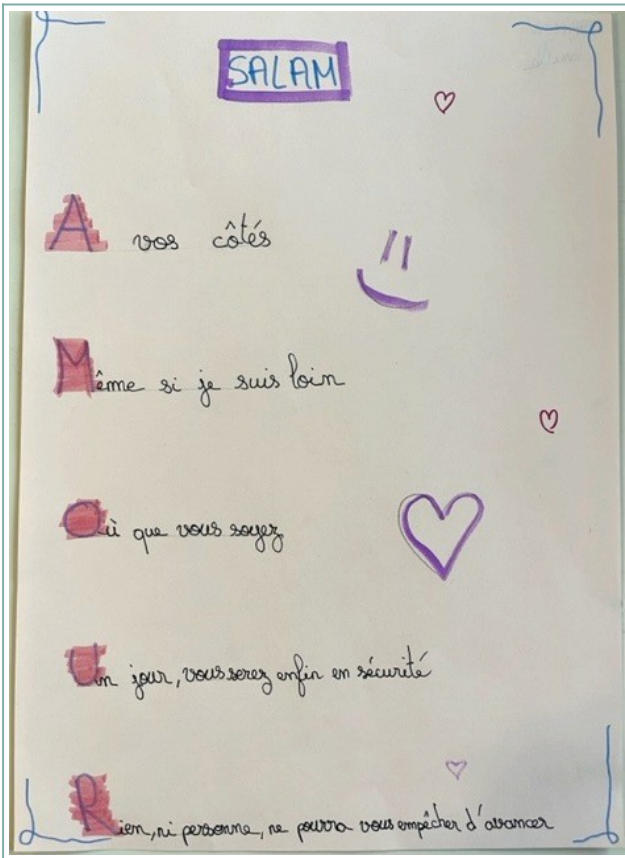 SALAM
A vos côtés
Même si je suis loin
Où que vous soyez
Un jour, vous serez enfin en sécurité
Rien, ni personne, ne pourra vous empêcher d'avancer